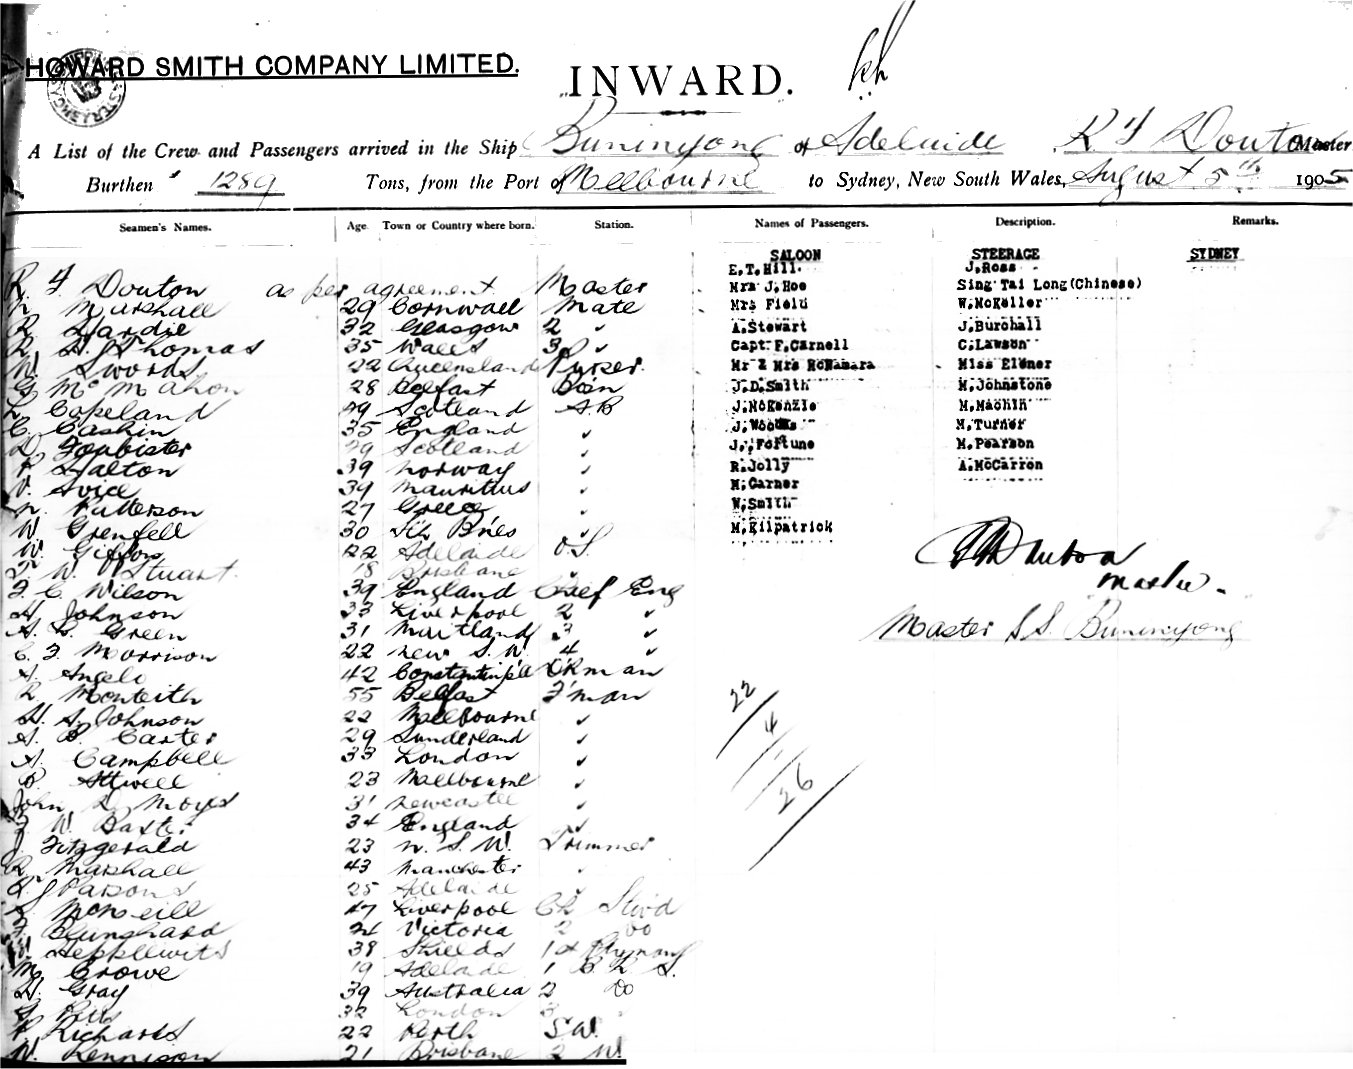 HOWARD SMITH COMPANY LIMITED.
INWARD.
A List of the Crew and Passengers arrived in the Ship Buninyong of Adelaide R F Douton Master
Burthen 1289 Tons, from the Port of Melbourne to Sydney, New South Wales, August 5th 1905
Seamen's Names. Age Town or Country where born. Station. Names of Passengers. Description. Remarks.
R. F Douton as per agreement Master
Marshall 29 Cornwall Mate
R Hardie 32 Glasgow 2 ✓
R. H. Thomas 35 Wales 3 ✓
W. Swords 22 Queensland Purser
G McMahon 28 Belfast Bo'n
L Copeland 49 Scotland A.B
C Cashin 35 England ✓
Foubister 29 Scotland ✓
Dalton 39 Norway ✓
Avice 39 Mauritius ✓
Patterson 27 Greece ✓
W Grenfell 30 ✓
W. Giffors 22 Adelaide O.S.
W. Stuart 18 Brisbane ✓
F. C Wilson 39 England Chief Eng
H Johnson 33 Liverpool 2 ✓
A. G. Green 31 Maitland 3 ✓
C. F Morrison 22 New S.W. 4 ✓
A. Angelo 42 Constantinple
Monteith 55 Belfast F'man
H. A. Johnson 22 Melbourne ✓
A. B. Carter 29 Sunderland ✓
A Campbell 33 London ✓
Attwell 23 Melbourne ✓
John D. Moyes 31 Newcastle ✓
W. Baxter 34 England ✓
J. Fitzgerald 23 N. S. W. Trimmer
R. Marshall 43 Manchester
Parsons 25 Adelaide ✓
McNeill 47 Liverpool Ch Stwd
F Blunchard 24 Victoria 2 Do
Hepplewits 38 Shields 1st
M. Crowe 19 Adelaide 1 B. R. S.
H. Gray 39 Australia 2 Do
Pitts 32 London 3
R Richards 22 Perth S.W.
W. Kennison 21 Brisbane 2 W
SALOON
E.T.Hill.
Mrs J.Hoe
Mrs Field
A.Stewart
Capt F.Carnell
Mr & Mrs McNamara
J.D.Smith
J.McKenzie
J.Woods
J.Fortune
R.Jolly
M.Garner
W.Smith
M.Kilpatrick
STEERAGE
J.Ross
Sing Tai Long(Chinese)
W.McKeller
J.Burchall
C.Lawson
Miss Eldner
M.Johnstone
M.Machin
M.Turner
M.Pearson
A.McCarron
SYDNEY
R F Douton
Master
Master S.S. Buninyong
22
4
26